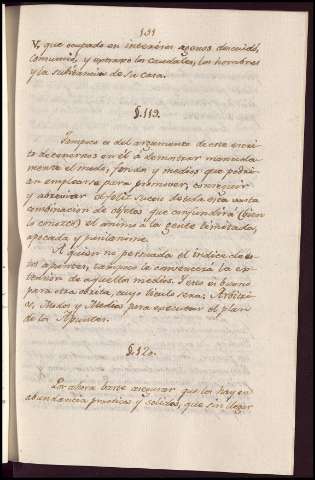 131
V, que ocupado en interesès agenos descuidò,
consumiò, y extraxo los caudales, los hombres
y la substancia de su casa.
§. 119.
Tampoco es del argumento de este escri-
to detenernos en èl à demostrar menuda-
mente el modo, forma y medios que podri-
an emplearse para promover, conseguir
y abreviar el feliz suceso de toda esta vasta
combinacion de objetos que confundirà (bien
lo conozco) el animo à la gente limitada,
apocada y pusilanime.
A quien no persuada el indice de es-
tos apuntes, tampoco le convencerà la ex-
tension de aquellos medios. Y esto es bueno
para otra obrita, cuyo titulo serà: Arbitri-
os, Modos y Medios para executar el plan
de los Apuntes.
§. 120.
Por ahora baste asegurar que los hay en
abundancia practicos y solidos, que sin llegar